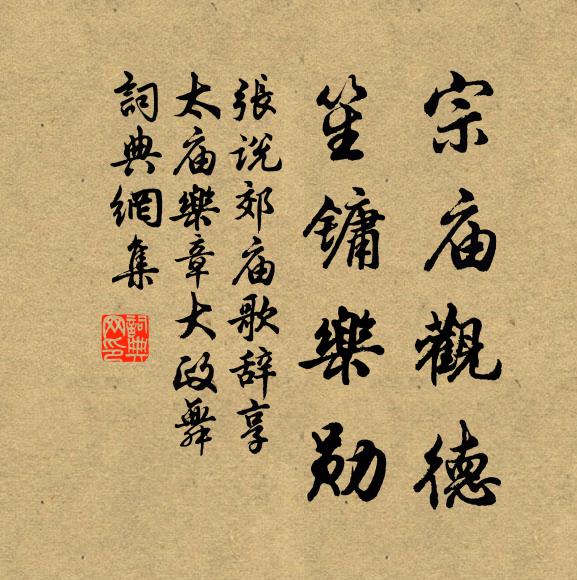 宗庙觀德
笙鏞樂勋
張说郊庙歌辞享
太庙樂章大政舞
詞典網集
詞典
网印